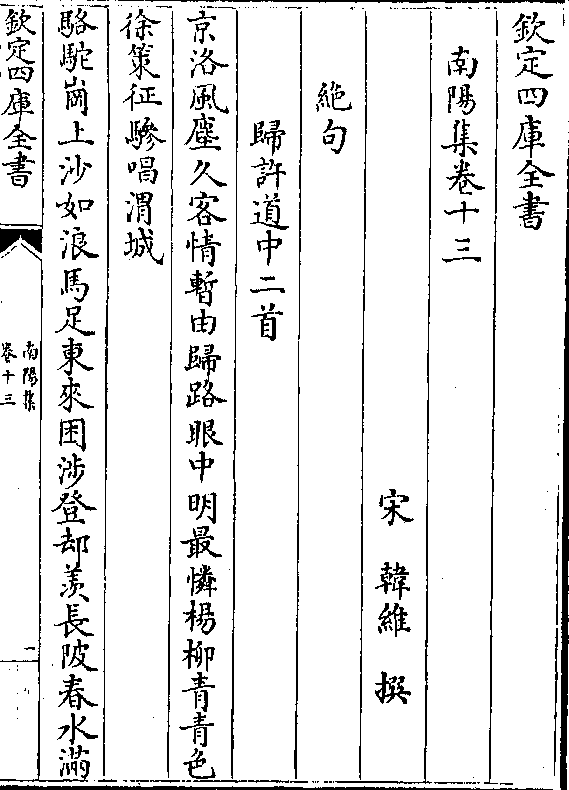 欽定四庫全書
南陽集卷十三
宋 韓維 撰
絶句
歸許道中二首
京洛風塵久客情暫由歸路眼中明最憐楊柳青青色
徐策征驂唱渭城
駱駝崗上沙如浪馬足東來困涉登却羨長陂春水滿
欽定四庫全書
南陽集
卷十三
一